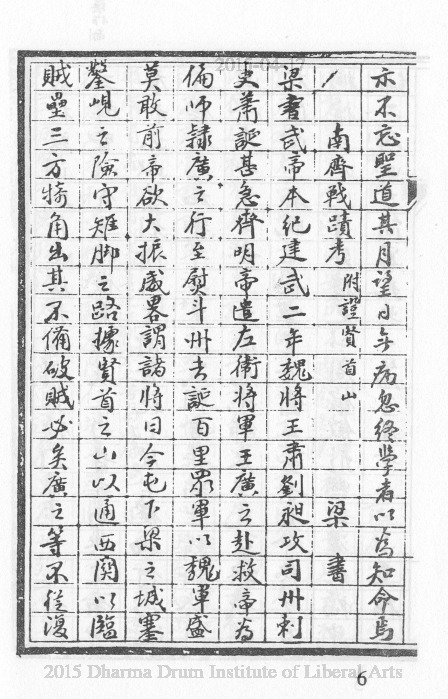 示不忘聖道其月望日無病忽終學者以為知命焉
南齊戰蹟考 附證賢首山 梁書
梁書武帝本紀建武二年魏將王肅劉昶攻司州刺
史蕭誕甚急齊明帝遣左衛將軍王廣之赴救帝為
偏師隸廣之行至熨斗州去誕百里眾軍以魏軍盛
莫敢前帝欲大振威畧謂諸將曰今屯下梁之城塞
鑿峴之險守雉脚之路據賢首之山以通西關以臨
賊壘三方犄角出其不備破賊必矣廣之等不從後
2015 Dharma Drum Institute of Liberal Arts
6